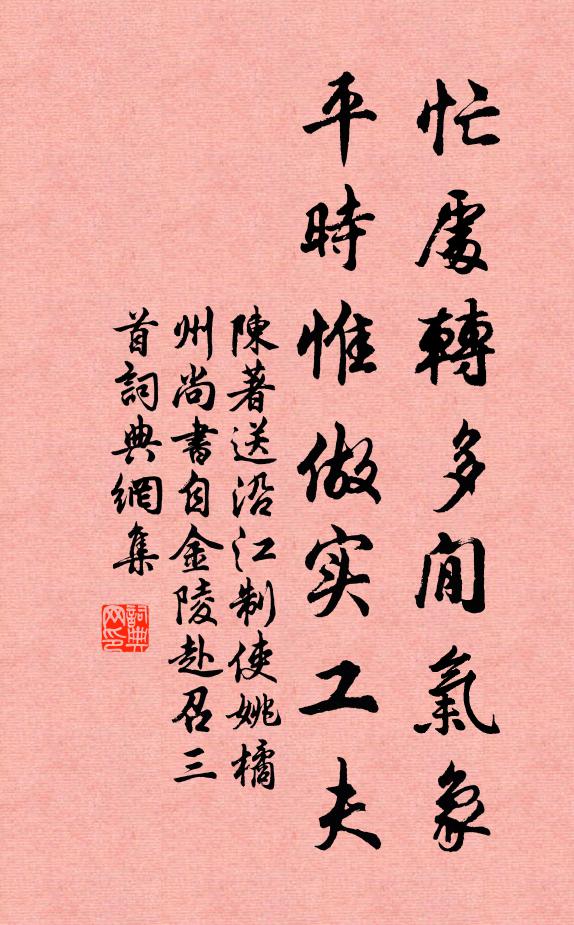 忙處轉多閒氣象
平時惟做实工夫
陳著送沿江制使姚橘
州尚書自金陵赴召三
首詞典網集
詞典网印